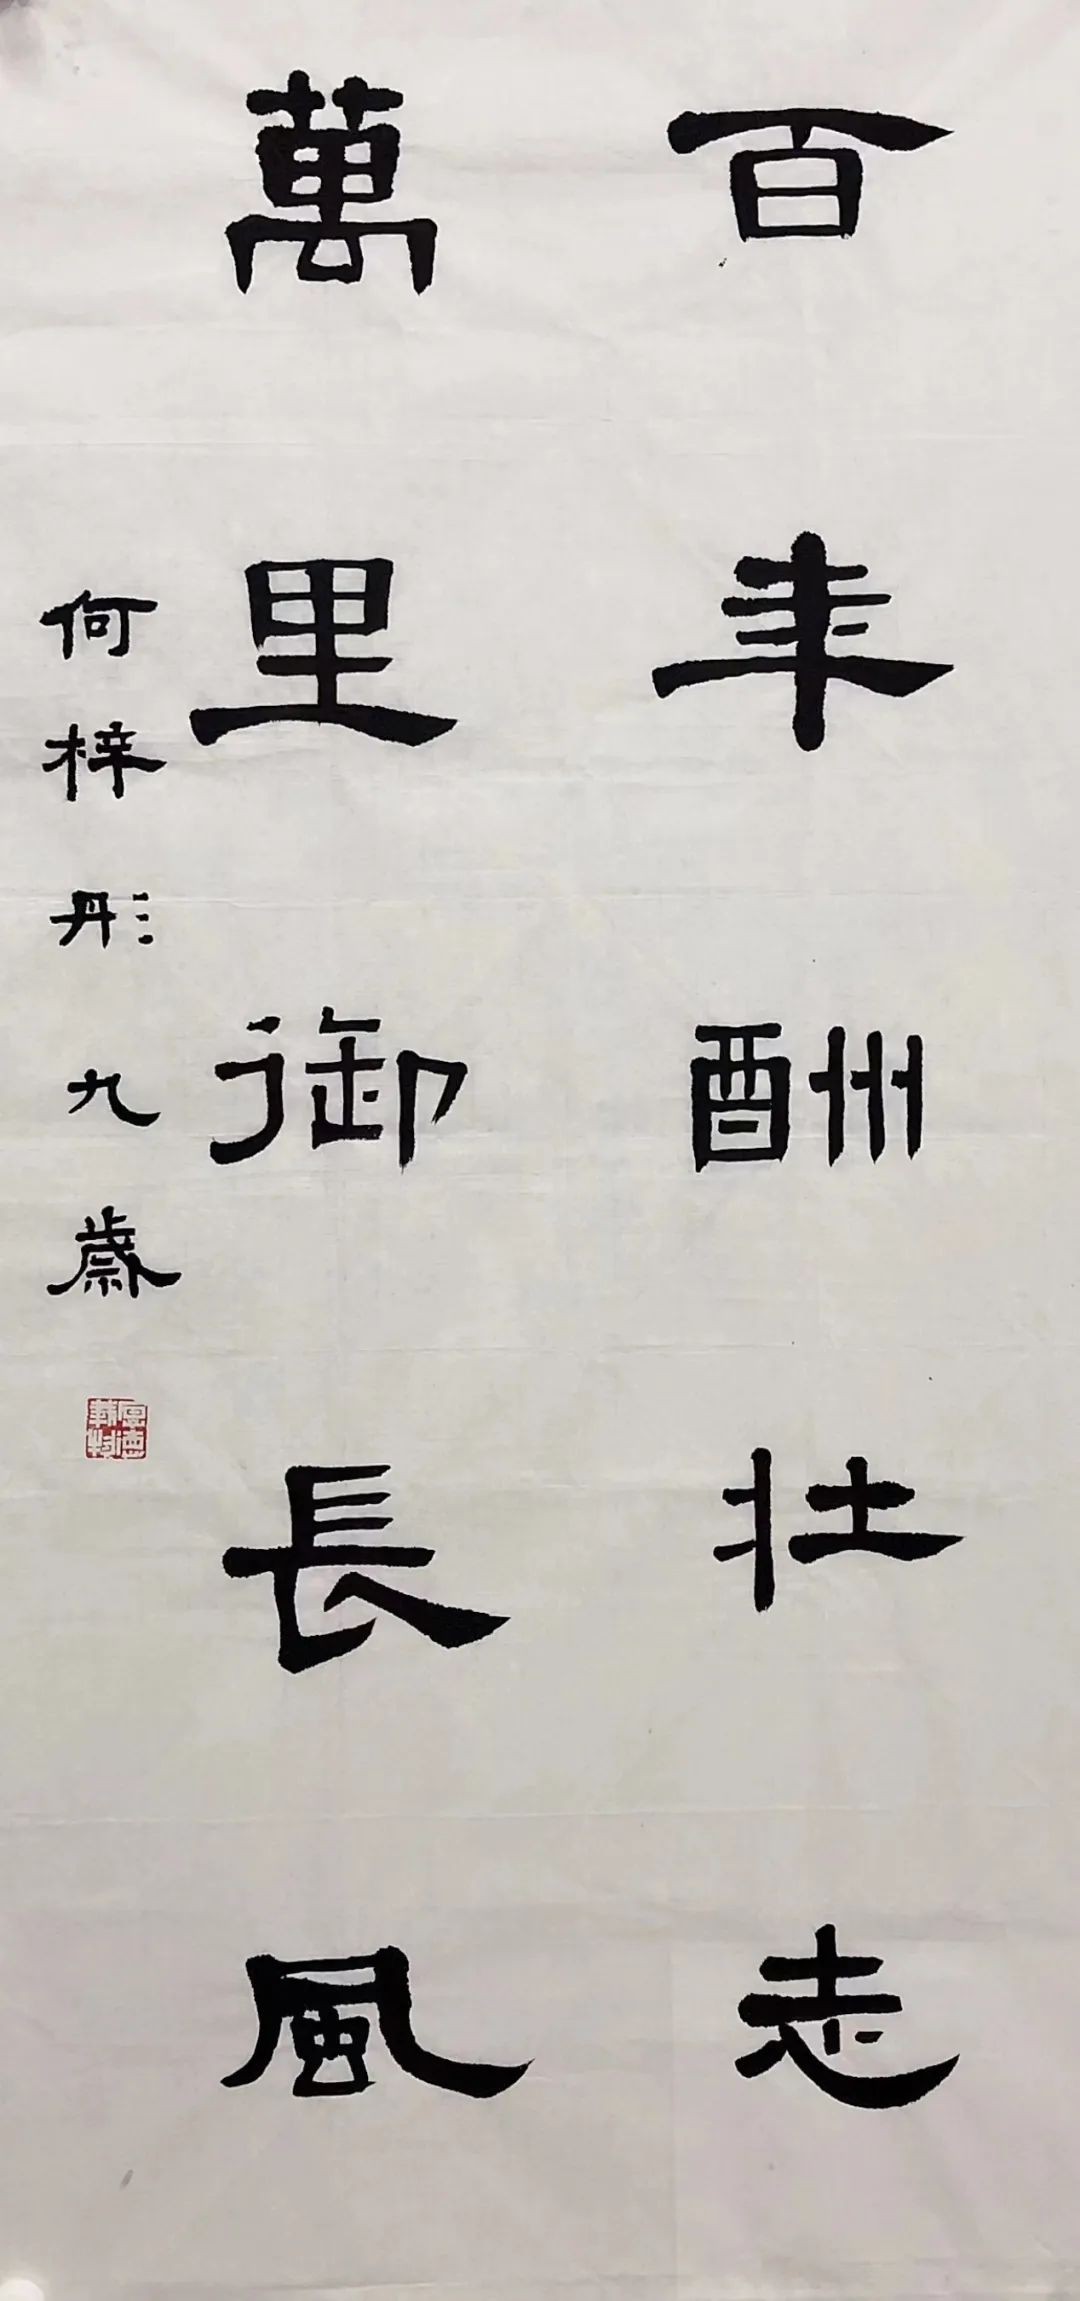 百年酬壮志
萬里御長風
何梓彤九歲